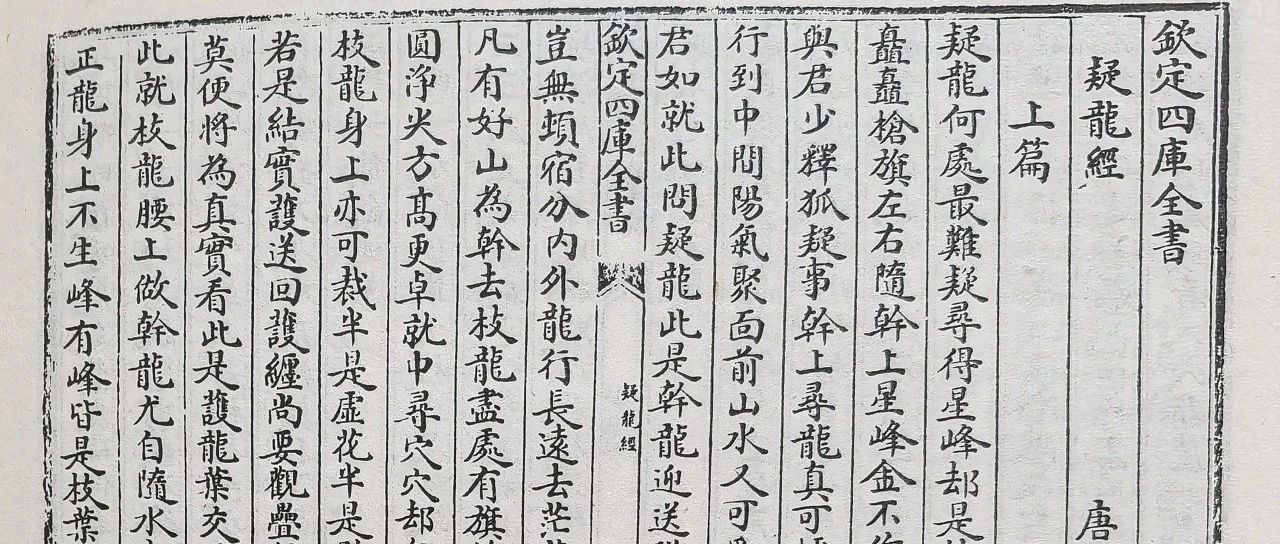 欽定四庫全書
疑龍經 唐
上篇
疑龍何處最難疑尋得星峰却是
矗矗槍旗左右隨幹上星峰金不
與君少釋狐疑事幹上尋龍真可
行到中間陽氣聚面前山水又可
君如就此問疑龍此是幹龍迎送
欽定四庫全書
疑龍經
豈無頓宿分内外龍行長遠去茫
凡有好山為幹去枝龍盡處有旗
圓淨尖方髙更卓就中尋穴穴却
枝龍身上亦可裁半是虚花半是
若是結實護送回護纒尚要觀疊
莫便將為真實看此是護龍葉交
此就枝龍腰上做幹龍尤自隨水
正龍身上不生峰有峰皆是枝葉